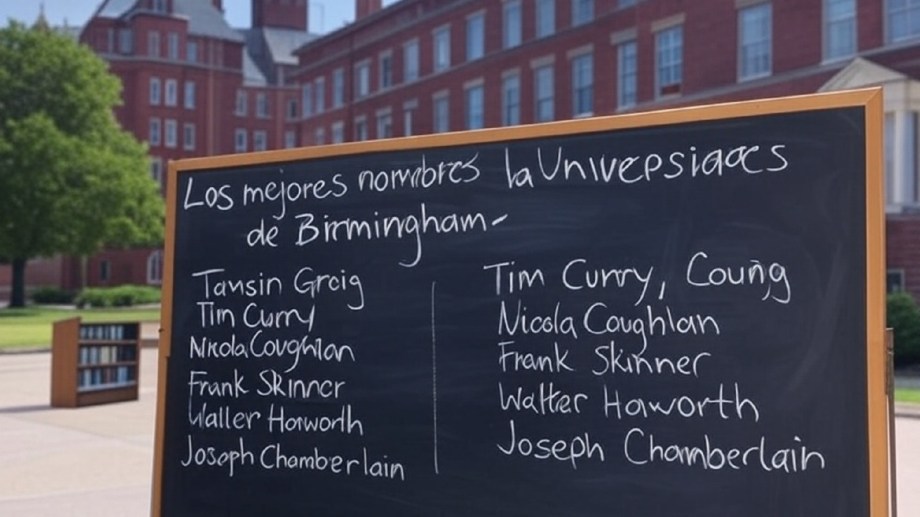 Los mejores nombres la Universidades
de Birmingham-
Tansin Greig
Tim Curry
Nikola Coughlan
Frank Skinner
Waller Howorth
Joseph Chamberlain
Tim Curry, Couing
Nicola Coughlan
Frank Skinner
Walter Howorth
Joseph Chamberlain